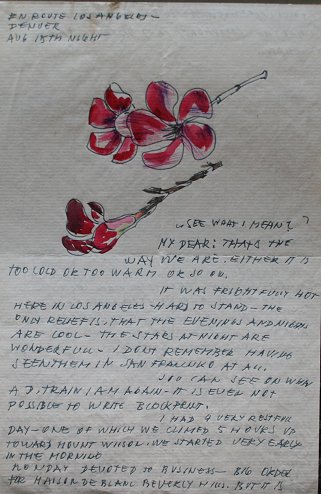 EN ROUTE LOS ANGELES –
DENVER
AUG 18TH NIGHT
"SEE WHAT I MEAN?
MY DEAR: THAT'S THE
WAY WE ARE. EITHER IT IS
TOO COLD OR TOO WARM OR SO ON.
IT WAS FRIGHTFULLY HOT
HERE IN LOS ANGELES – HARD TO STAND – THE
ONLY RELIEF IS, THAT THE EVENINGS AND NIGHTS
ARE COOL – THE STARS AT NIGHT ARE
WONDERFULL – I DONT REMEMBER HAVING
SEEN THEM IN SAN FRANCISCO AT ALL.
YOU CAN SEE ON WHAT
A TRAIN I AM AGAIN – IT IS EVEN NOT
POSSIBLE TO WRITE BLOCKPRINT.
I HAD A VERY RESTFUL
DAY – ONE OF WHICH WE CLIMED 5 HOURS UP
TOWARD MOUNT WILSON. WE STARTED VERY EARLY
IN THE MORNING
MONDAY DEVOTED TO BUSINESS – BIG ORDER
FOR MAISON DE BLANC BEVERLY HILLS. BUT IT IS